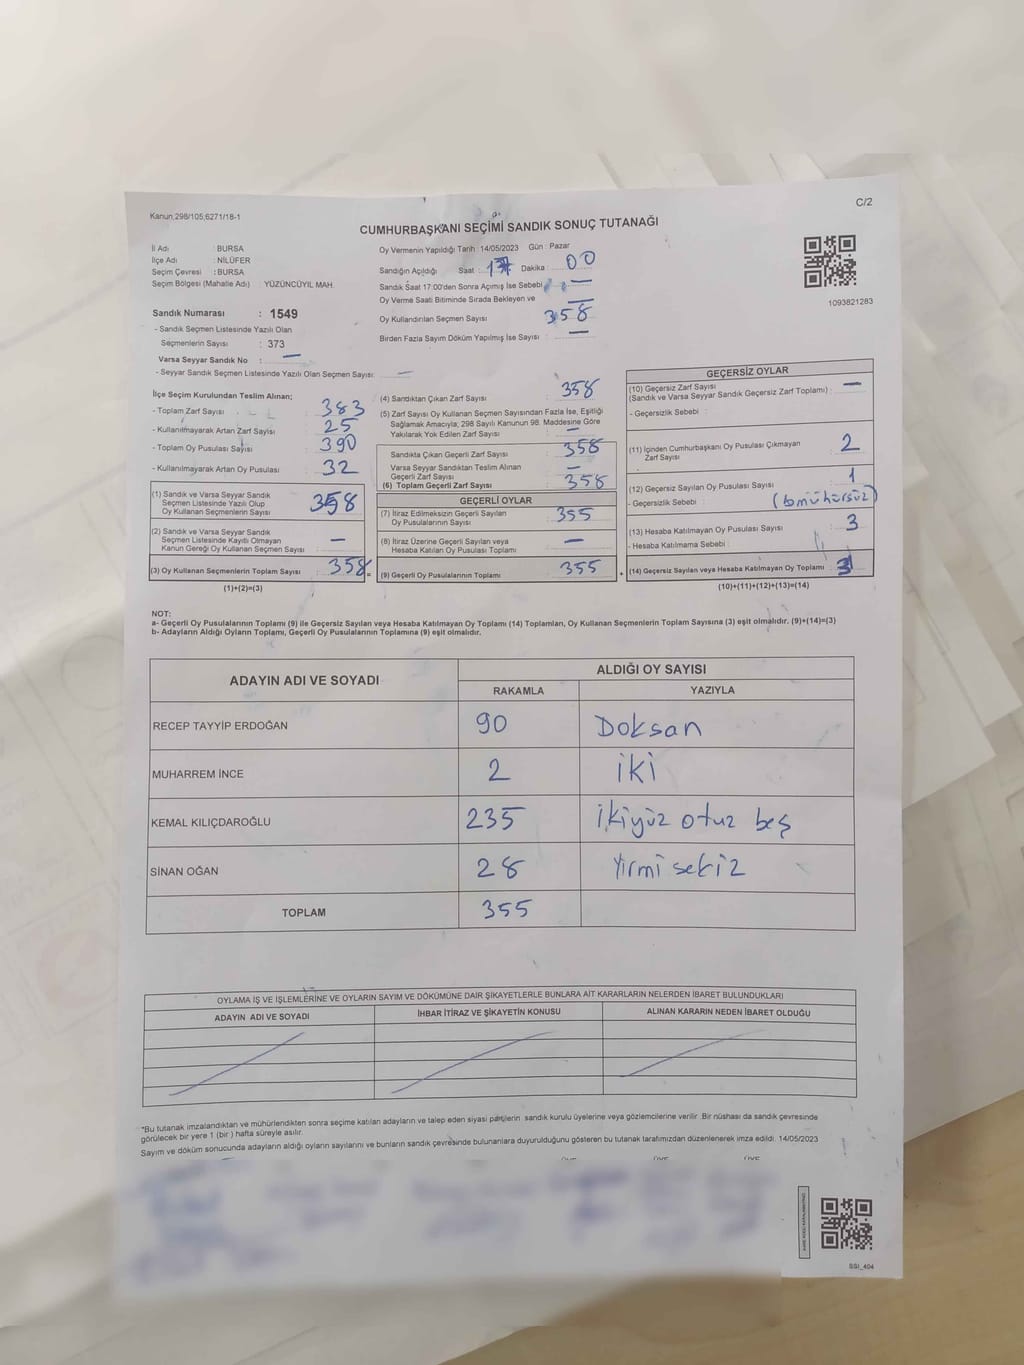 Kanun;298/105;6271/18-1
C/2
CUMHURBAŞKANI SEÇİMİ SANDIK SONUÇ TUTANAĞI
İl Adı : BURSA
İlçe Adı : NİLÜFER
Seçim Çevresi : BURSA
Seçim Bölgesi (Mahalle Adı) : YÜZÜNCÜYIL MAH.
Sandık Numarası : 1549
- Sandık Seçmen Listesinde Yazılı Olan
Seçmenlerin Sayısı : 373
Varsa Seyyar Sandık No : —
- Seyyar Sandık Seçmen Listesinde Yazılı Olan Seçmen Sayısı: —
Oy Vermenin Yapıldığı Tarih :14/05/2023 Gün : Pazar
Sandığın Açıldığı Saat : 17 Dakika : 00
Sandık Saat 17:00'den Sonra Açımış İse Sebebi : —
Oy Verme Saati Bitiminde Sırada Bekleyen ve
Oy Kullandırılan Seçmen Sayısı : 358
Birden Fazla Sayım Döküm Yapılmış İse Sayısı : —
1093821283
İlçe Seçim Kurulundan Teslim Alınan;
- Toplam Zarf Sayısı : 383
- Kullanılmayarak Artan Zarf Sayısı : 25
- Toplam Oy Pusulası Sayısı : 390
- Kullanılmayarak Artan Oy Pusulası : 32
(1) Sandık ve Varsa Seyyar Sandık
Seçmen Listesinde Yazılı Olup
Oy Kullanan Seçmenlerin Sayısı : 358
(2) Sandık ve Varsa Seyyar Sandık
Seçmen Listesinde Kayıtlı Olmayan
Kanun Gereği Oy Kullanan Seçmen Sayısı : —
(3) Oy Kullanan Seçmenlerin Toplam Sayısı : 358 =
(1)+(2)=(3)
(4) Sandıktan Çıkan Zarf Sayısı : 358
(5) Zarf Sayısı Oy Kullanan Seçmen Sayısından Fazla İse, Eşitliği
Sağlamak Amacıyla; 298 Sayılı Kanunun 98. Maddesine Göre
Yakılarak Yok Edilen Zarf Sayısı : —
Sandıkta Çıkan Geçerli Zarf Sayısı : 358
Varsa Seyyar Sandıktan Teslim Alınan
Geçerli Zarf Sayısı : —
(6) Toplam Geçerli Zarf Sayısı : 358
GEÇERLİ OYLAR
(7) İtiraz Edilmeksizin Geçerli Sayılan
Oy Pusulalarının Sayısı : 355
(8) İtiraz Üzerine Geçerli Sayılan veya
Hesaba Katılan Oy Pusulası Toplamı : —
(9) Geçerli Oy Pusulalarının Toplamı : 355 +
GEÇERSİZ OYLAR
(10) Geçersiz Zarf Sayısı
(Sandık ve Varsa Seyyar Sandık Geçersiz Zarf Toplamı) : —
- Geçersizlik Sebebi :
(11) İçinden Cumhurbaşkanı Oy Pusulası Çıkmayan
Zarf Sayısı : 2
(12) Geçersiz Sayılan Oy Pusulası Sayısı : 1
- Geçersizlik Sebebi : mühürsüz)
(13) Hesaba Katılmayan Oy Pusulası Sayısı : 3
- Hesaba Katılmama Sebebi :
(14) Geçersiz Sayılan veya Hesaba Katılmayan Oy Toplamı : 3
(10)+(11)+(12)+(13)=(14)
NOT:
a- Geçerli Oy Pusulalarının Toplamı (9) ile Geçersiz Sayılan veya Hesaba Katılmayan Oy Toplamı (14) Toplamları, Oy Kullanan Seçmenlerin Toplam Sayısına (3) eşit olmalıdır. (9)+(14)=(3)
b- Adayların Aldığı Oyların Toplamı, Geçerli Oy Pusulalarının Toplamına (9) eşit olmalıdır.
ADAYIN ADI VE SOYADI
ALDIĞI OY SAYISI
RAKAMLA YAZIYLA
RECEP TAYYİP ERDOĞAN 90 Doksan
MUHARREM İNCE 2 iki
KEMAL KILIÇDAROĞLU 235 ikiyüz otuz beş
SİNAN OĞAN 28 Yirmi sekiz
TOPLAM 355
OYLAMA İŞ VE İŞLEMLERİNE VE OYLARIN SAYIM VE DÖKÜMÜNE DAİR ŞİKAYETLERLE BUNLARA AİT KARARLARIN NELERDEN İBARET BULUNDUKLARI
ADAYIN ADI VE SOYADI İHBAR İTİRAZ VE ŞİKAYETİN KONUSU ALINAN KARARIN NEDEN İBARET OLDUĞU
*Bu tutanak imzalandıktan ve mühürlendikten sonra seçime katılan adayların ve talep eden siyasi partilerin sandık kurulu üyelerine veya gözlemcilerine verilir. Bir nüshası da sandık çevresinde
görülecek bir yere 1 (bir ) hafta süreyle asılır.
Sayım ve döküm sonucunda adayların aldığı oyların sayılarını ve bunların sandık çevresinde bulunanlara duyurulduğunu gösteren bu tutanak tarafımızdan düzenlenerek imza edildi. 14/05/2023
SSI_404